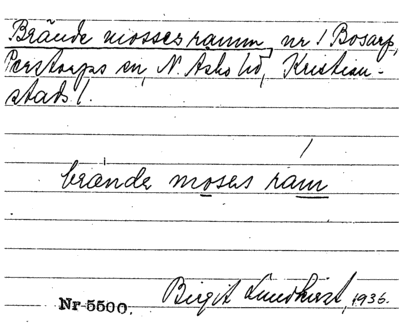 Brände mosses ramm, nr 1 Bosarp,
Perstorps sn, N. Åsbo hd, Kristian-
stads l.
brände moses ram
Nr 5500. Birgit Lundkvist, 1936.